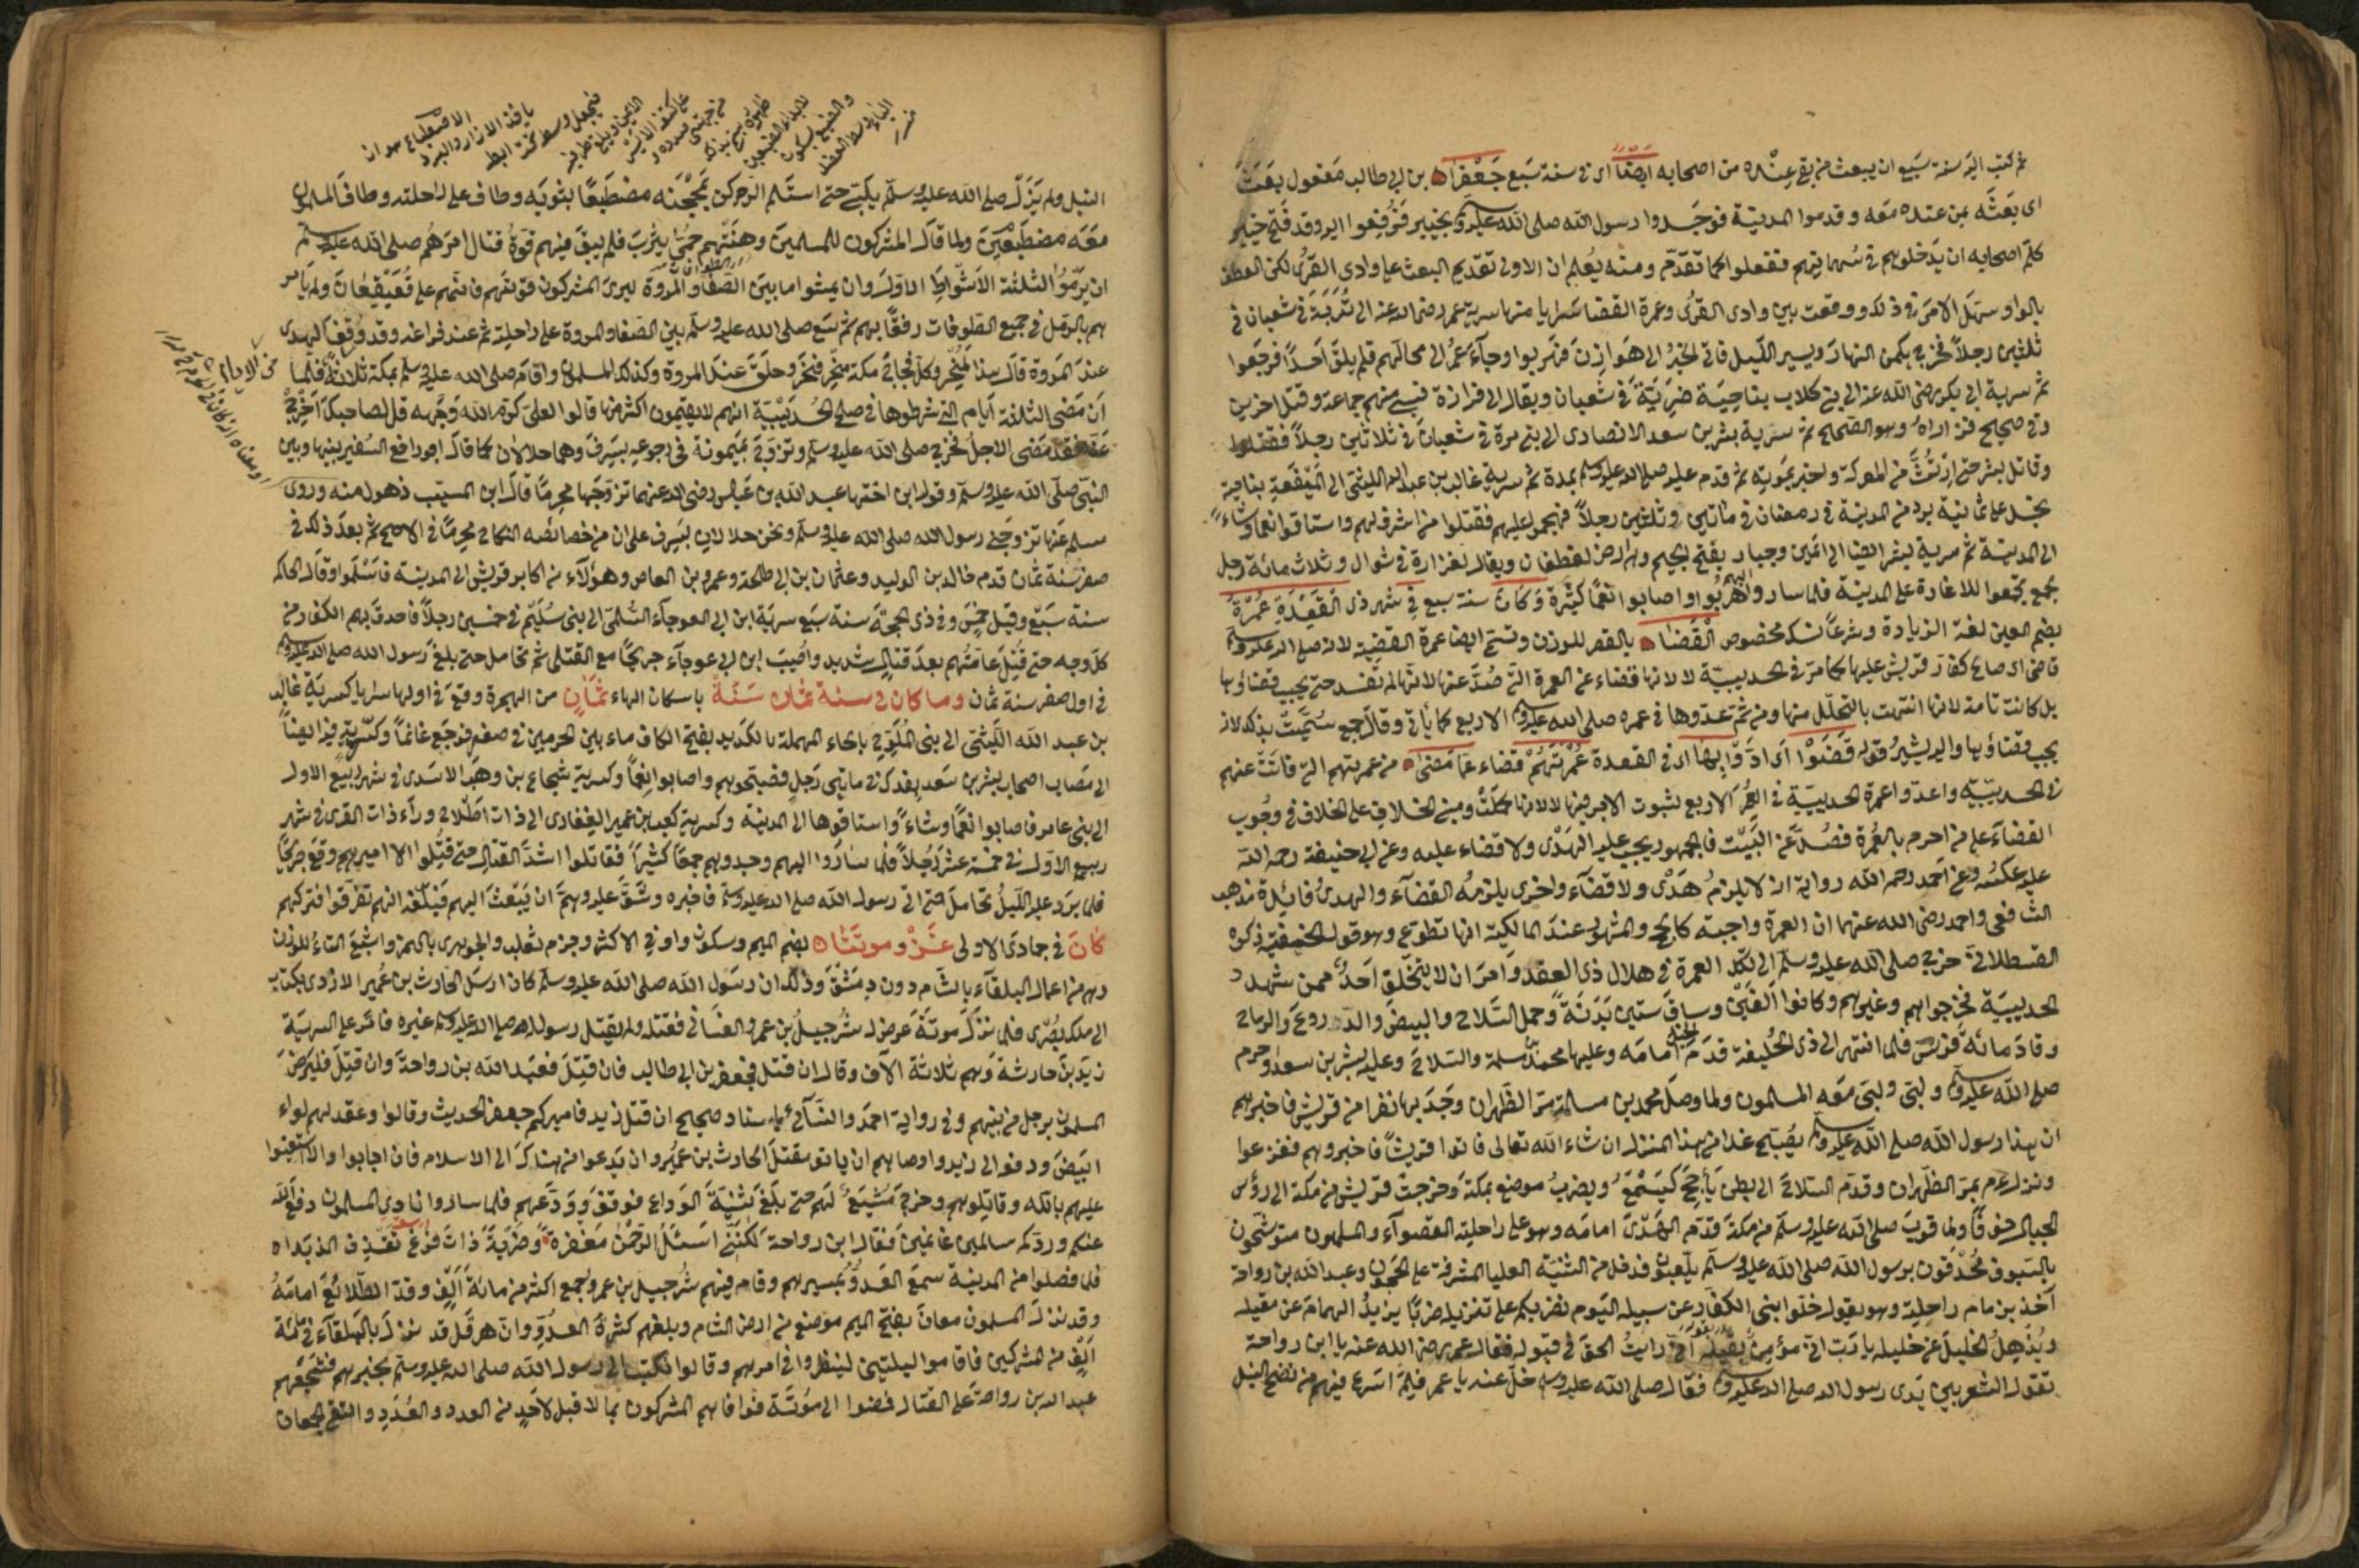 ثم كتب اليه سنة سبع ان يبعث من بقى عنده من اصحابه ايضا اى فى سنة سبع جعفرا بن ابى طالب مفعول بعث
اى بعثه بمن عنده معه وقدموا المدينة فوجدوا رسول الله صلى الله عليه وسلم بخيبر فرفعوا اليه وقد فتح خيبر
كلم اصحابه ان يدخلوهم فى سهامهم ففعلوا كما تقدم ومنه يعلم ان الاولى تقديم البعث على وادى القرى لكن العطف
بالواو سهل الامر فى ذلك ووقعت بين وادى القرى وعمرة القضا سرايا منها سرية عمر رضى الله عنه الى تربة فى شعبان فى
ثلثين رجلا فخرج يكمن النهار ويسير الليل فاتى الخبر الى هوازن فهربوا وجاء عمر الى محالهم فلم يلق احدا فرجعوا
ثم سرية ابى بكر رضى الله عنه الى بنى كلاب بناحية ضرية فى شعبان ويقال الى فزارة فسبى منهم جماعة وقتل اخرين
وفى صحيح فزاراه وهو الصحيح ثم سرية بشر بن سعد الانصارى الى بنى مرة فى شعبان فى ثلاثين رجلا فقتلوا
وقاتل بشر حتى ارتث من المعركة واخبر بموته ثم قدم عليه صلى الله عليه وسلم بمدة ثم سرية غالب بن عبد الله الليثى الى الميفعة بناحية
نجد على ثمانية برد من المدينة فى رمضان فى مائتين وثلثين رجلا فهجموا عليهم فقتلوا من اشرف لهم واستاقوا نعما وشاء
الى المدينة ثم سرية بشر ايضا الى ايمن وجبار بفتح الجيم وهى ارض لغطفان ويقال لفزارة فى شوال وثلاث مائة رجل
لجمع تجمعوا للاغارة على المدينة فلما ساروا اليهم هربوا واصابوا نعما كثيرة وكان سنة سبع فى شهر ذى القعدة عمرة
بضم العين لغة الزيادة وشرعا نسك مخصوص القضا بالقصر للوزن وتسمى ايضا عمرة القضية لانه صلى الله عليه وسلم
قاضى اى صالح كفار قريش عليها كما مر فى الحديبية لا لانها قضاء عن العمرة التى صد عنها لانها لم تفسد حتى يجب قضاؤها
بل كانت تامة لانها انتهت بالتحلل منها ومن ثم عدوها فى عمره صلى الله عليه وسلم الاربع كما ياتى وقال جمع سميت بذلك لانه
يجب قضاؤها واليه يشير قوله قضوا اى ادوا بها اى فى القعدة عمرتهم قضاء عما مضى من عمرتهم التى فاتت عنهم
فى الحديبية واعدوا عمرة الحديبية فى العمر الاربع لثبوت الاجر فيها لا لانها كملت ومبنى الخلاف على الخلاف فى وجوب
القضاء على من احرم بالعمرة فصد عن البيت فالجمهور يجب عليه الهدى ولا قضاء عليه وعن ابى حنيفة رحمه الله
عليه عكسه وعن احمد رحمه الله رواية انه لا يلزم هدى ولا قضاء واخرى يلزمه القضاء والهدى فائدة مذهب
الشافعى واحمد رضى الله عنهما ان العمرة واجبة كالحج والمشهور عند المالكية انها تطوع وهو قول الحنفية ذكره
القسطلانى خرج صلى الله عليه وسلم الى تلك العمرة فى هلال ذى العقد وامر ان لا يتخلق احد ممن شهد
الحديبية فخرجوا هم وغيرهم وكانوا الفين وساق ستين بدنة وحمل السلاح والبيض والدروع والرماح
وقاد مائة فرس فلما انتهى الى ذى الحليفة قدم الخيل امامه وعليها محمد بن مسلمة والسلاح وعليه بشر بن سعد واحرم
صلى الله عليه وسلم ولبى ولبى معه المسلمون ولما وصل محمد بن مسلمة مر الظهران وجد بها نفرا من قريش فاخبرهم
ان هذا رسول الله صلى الله عليه وسلم يصبح غدا من هذا المنزل ان شاء الله تعالى فاتوا قريشا فاخبروهم ففزعوا
ونزل عم بمر الظهران وقدم السلاح الى بطن يأجج كيسمع ويضرب موضع بمكة وخرجت قريش من مكة الى رؤس
الجبال خوفا ولما قرب صلى الله عليه وسلم من مكة قدم الهدى امامه وهو على راحلته القصواء والمسلمون متوشحون
بالسيوف محدقون برسول الله صلى الله عليه وسلم يلبون فدخل من الثنية العليا المشرفة على الحجون وعبد الله بن رواحة
آخذ بزمام راحلته وهو يقول خلوا بنى الكفار عن سبيله اليوم نضربكم على تنزيله ضربا يزيل الهام عن مقيله
ويذهل الخليل عن خليله يا رب انى مؤمن بقيله انى رايت الحق فى قبوله فقال عمر رضى الله عنه يا ابن رواحة
تقول الشعر بين يدى رسول الله صلى الله عليه وسلم فقال صلى الله عليه وسلم خل عنه يا عمر فلهى اسرع فيهم من نضح النبل
الاضطباع هو ان
ياخذ الازار والبرد
فيجعل وسطه تحت ابطه
الايمن ويلقى طرفيه
على كتفه الايسر
من جهتى صدره و
ظهره سمى بذلك
لابداء الضبعين
والضبع بسكون
الباء وسط العضد
النبل ولم يزل صلى الله عليه وسلم يلبى حتى استلم الركن بمحجنه مضطبعا بثوبه وطاف على راحلته وطاف المسلمون
معه مضطبعين ولما قال المشركون للمسلمين وهنتهم حمى يثرب فلم يبق فيهم قوة قتال امرهم صلى الله عليه وسلم
ان يرملوا الثلثة الاشواط الاول وان يمشوا ما بين الصفا والمروة ليرى المشركون قوتهم فانهم على قعيقعان ولم يامر
هم بالرمل فى جميع الطوفات رفقا بهم ثم سعى صلى الله عليه وسلم بين الصفا والمروة على راحلته ثم عند فراغه وقد وقف الهدى
عند المروة قال هذا المنحر وكل فجاج مكة منحر فنحر وحلق عند المروة وكذلك المسلمون واقام صلى الله عليه وسلم بمكة ثلاثة فلما
ان مضى الثلاثة ايام التى شرطوها فى صلح الحديبية انهم لا يقيمون اكثر منها قالوا لعلى كرم الله وجهه قل لصاحبك اخرج
عنا فقد مضى الاجل فخرج صلى الله عليه وسلم وتزوج بميمونة فى رجوعه بسرف وهما حلالان كما قال ابو رافع السفير بينها وبين
النبى صلى الله عليه وسلم وقول ابن اختها عبد الله بن عباس رضى الله عنهما تزوجها محرما قال ابن المسيب ذهول منه وروى
مسلم عنها تزوجنى رسول الله صلى الله عليه وسلم ونحن حلالان بسرف على ان من خصائصه النكاح محرما فى الاصح ثم بعد ذلك فى
صفر سنة ثمان قدم خالد بن الوليد وعثمان بن ابى طلحة وعمرو بن العاص وهؤلاء من اكابر قريش الى المدينة فاسلموا وقال الحاكم
سنة سبع وقيل خمس وفى ذى الحجة سنة سبع سرية ابن ابى العوجاء السلمى الى بنى سليم فى خمسين رجلا فاحدق بهم الكفار من
كل وجه حتى قتل عامتهم بعد قتال شديد واصيب ابن ابى عوجاء جريحا مع القتلى ثم تحامل حتى بلغ رسول الله صلى الله عليه وسلم
فى اول صفر سنة ثمان وما كان فى سنة ثمان سنة باسكان الهاء ثمان من الهجرة وقع فى اولها سرايا كسرية غالب
بن عبد الله الليثى الى بنى الملوح بالحاء المهملة بالكديد بفتح الكاف ماء بين الحرمين فى صفر فرجع غانما وكسريته فيه ايضا
الى مصاب اصحاب بشر بن سعد بفدك فى مائتى رجل فصبحوهم واصابوا نعما وكسرية شجاع بن وهب الاسدى فى شهر ربيع الاول
الى بنى عامر فاصابوا نعما وشاء واستاقوها الى المدينة وكسرية كعب بن عمير الغفارى الى ذات اطلاح وراء ذات القرى فى شهر
ربيع الاول فى خمسة عشر رجلا فلما ساروا اليهم وجدوهم جمعا كثيرا فقاتلوا اشد القتال حتى قتلوا الا اميرهم وقع جريحا
فلما برد عليه الليل تحامل حتى اتى رسول الله صلى الله عليه وسلم فاخبره وشق عليه وهم ان يبعث اليهم فبلغه انهم تفرقوا فتركهم
كان فى جمادى الاولى غزو موتة بضم الميم وسكون واو فى الاكثر وجزم ثعلب والجوهرى بالهمز واشبع التاء للوزن
وهى من اعمال البلقاء بالشام دون دمشق وذلك ان رسول الله صلى الله عليه وسلم كان ارسل الحارث بن عمير الازدى بكتاب
الى ملك بصرى فلما نزل موتة عرض له شرحبيل بن عمرو الغسانى فقتله ولم يقتل رسول له صلى الله عليه وسلم غيره فامر على السرية
زيد بن حارثة وهم ثلاثة آلاف وقال ان قتل فجعفر بن ابى طالب فان قتل فعبد الله بن رواحة وان قتل فليرض
المسلمون برجل من بينهم وفى رواية احمد والنسائى باسناد صحيح ان قتل زيد فاميركم جعفر الحديث وقالوا وعقد لهم لواء
ابيض ودفعه الى زيد واوصاهم ان ياتوا مقتل الحارث بن عمير وان يدعوا من هناك الى الاسلام فان اجابوا والا استعينوا
عليهم بالله وقاتلوهم وخرج مشيعا لهم حتى بلغ ثنية الوداع فوقف وودعهم فلما ساروا نادى المسلمون دفع الله
عنكم وردكم سالمين غانمين فقال ابن رواحة لكننى اسئل الرحمن مغفرة وضربة ذات فرغ تقذف الزبدا
فلما فصلوا من المدينة سمع العدو بمسيرهم وقام فيهم شرحبيل بن عمرو فجمع اكثر من مائة الف وقدم الطلائع امامه
وقد نزل المسلمون معان بفتح الميم موضع من ارض الشام وبلغهم كثرة العدو وان هرقل قد نزل بالبلقاء فى مائة
الف من المشركين فاقاموا ليلتين لينظروا فى امرهم وقالوا نكتب الى رسول الله صلى الله عليه وسلم نخبرهم فشجعهم
عبد الله بن رواحة على القتال فمضوا الى موتة فوافاهم المشركون بما لا قبل لاحد من العدد والعُدد والتقى الجمعان